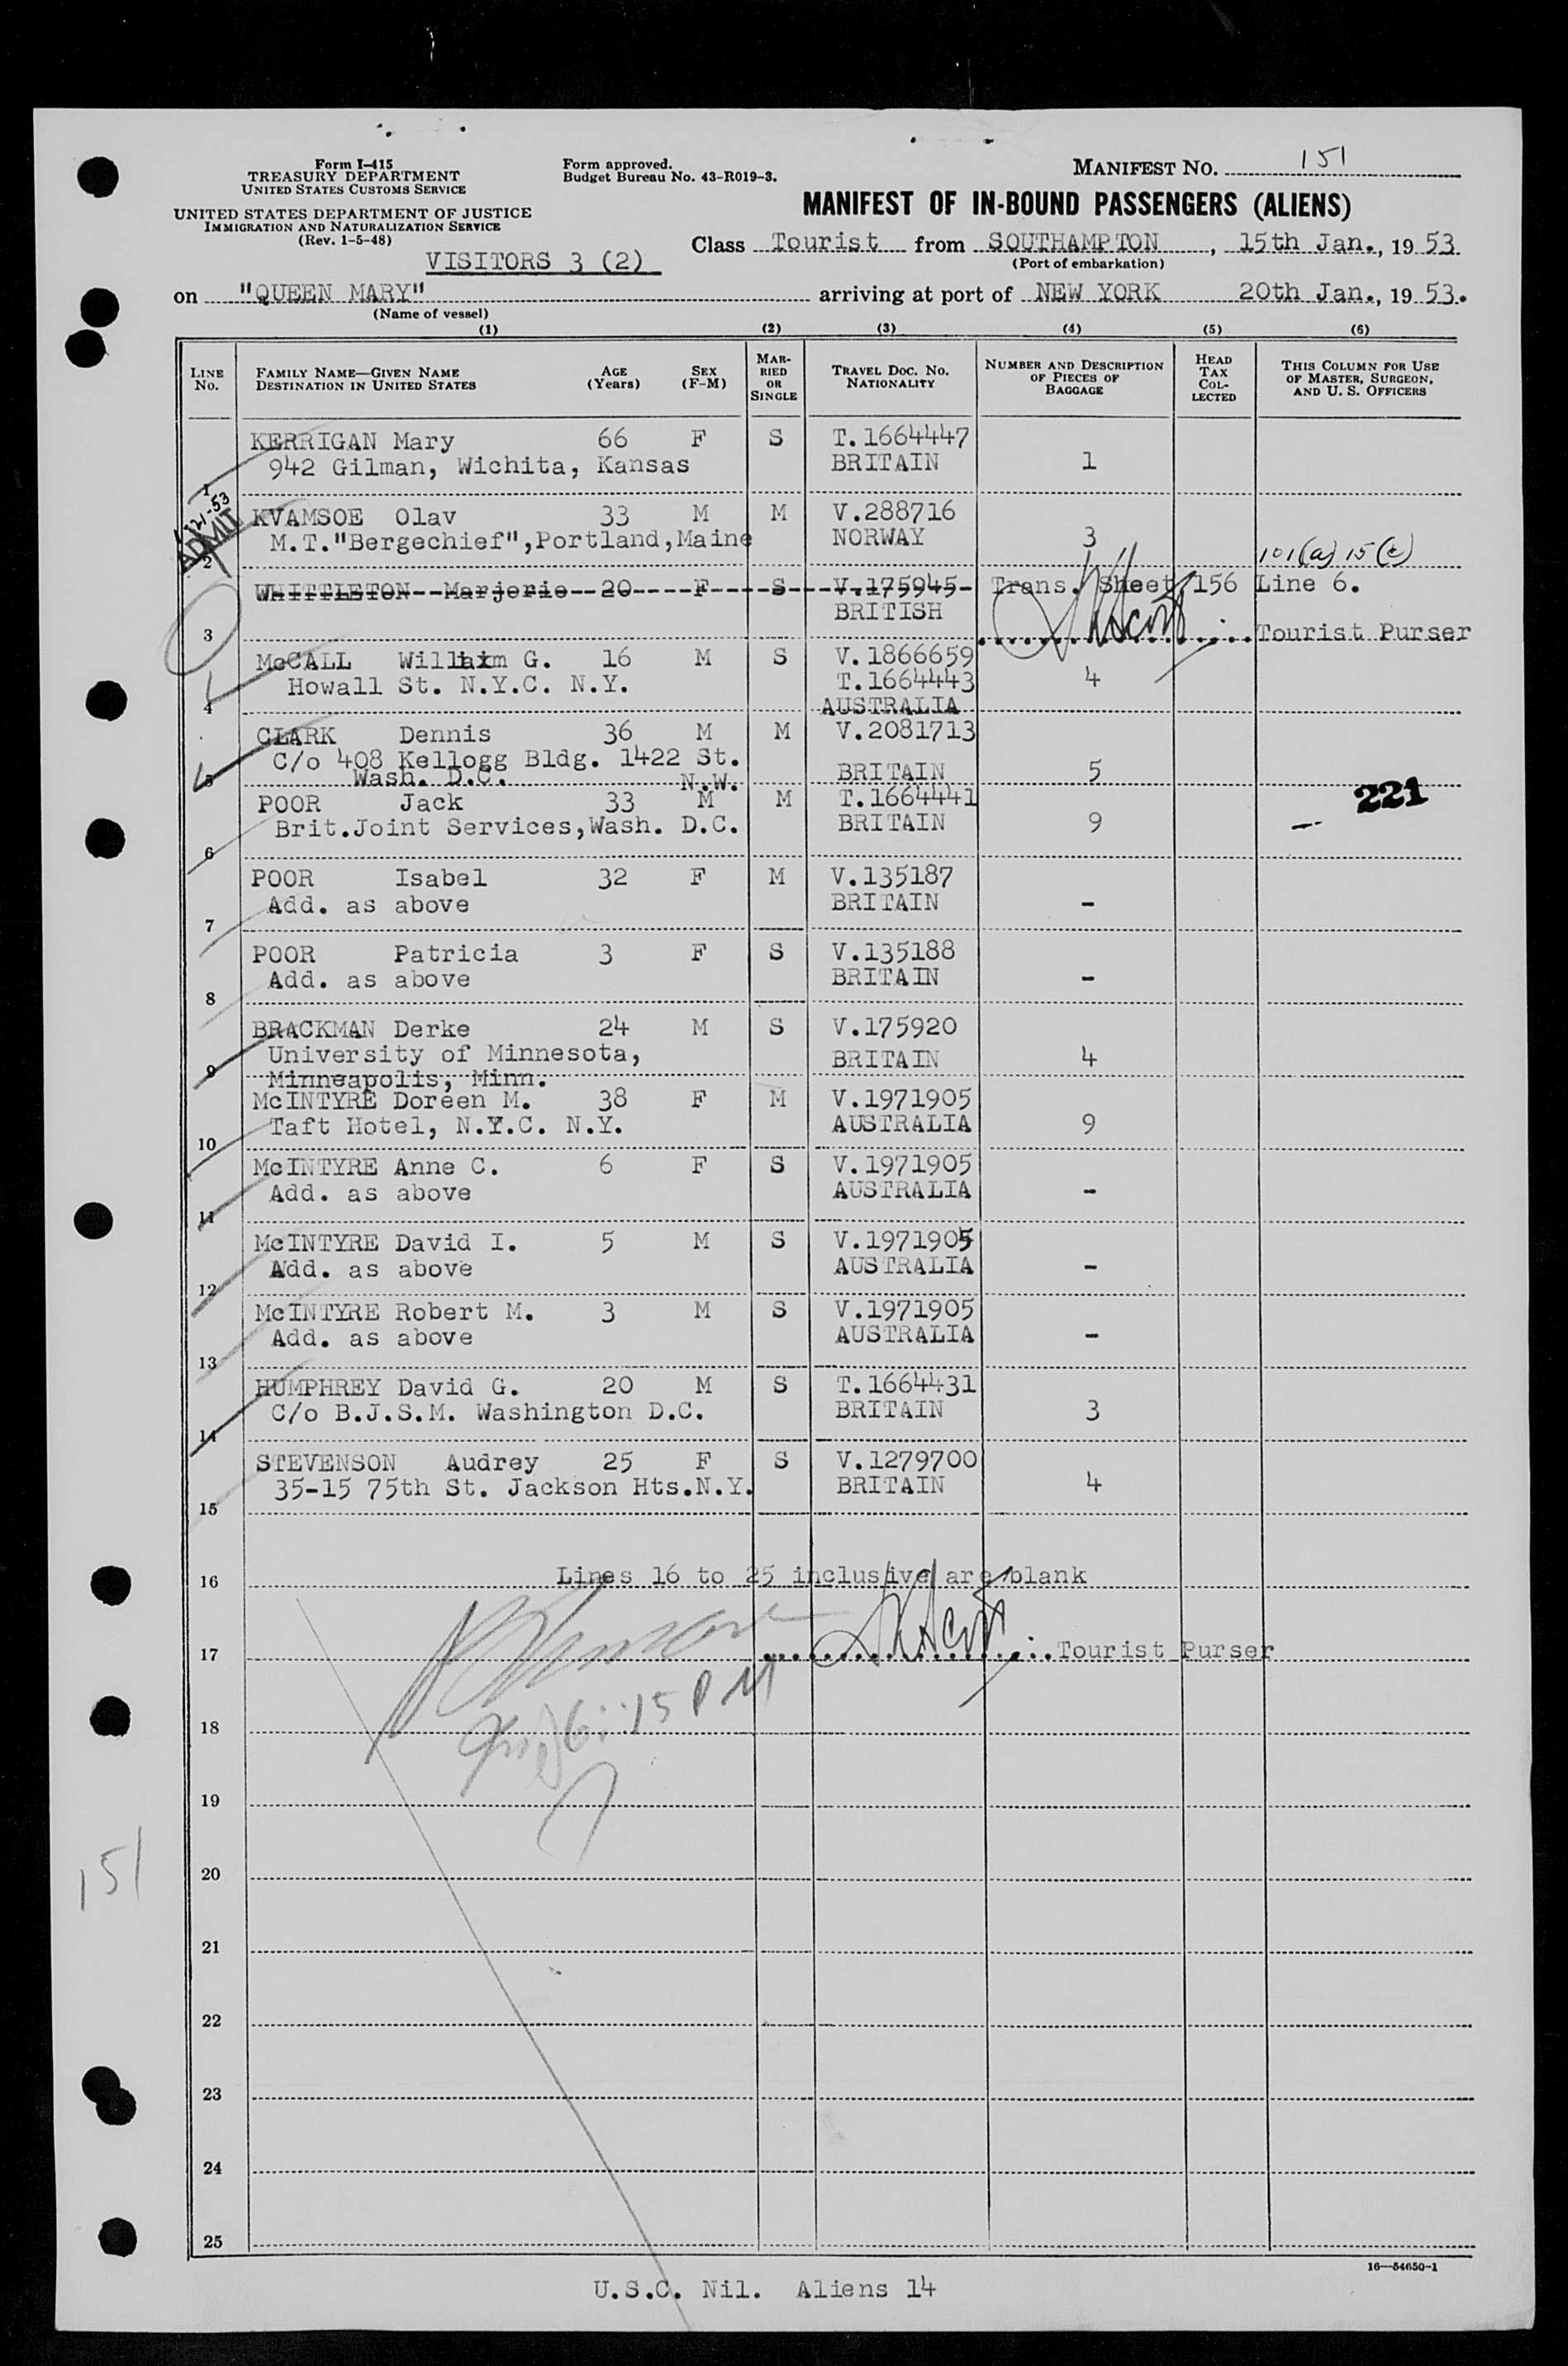 Form I-415
TREASURY DEPARTMENT
UNITED STATES CUSTOMS SERVICE
UNITED STATES DEPARTMENT OF JUSTICE
IMMIGRATION AND NATURALIZATION SERVICE
(Rev. 1-5-48)
Form approved.
Budget Bureau No. 43-R019-3.
MANIFEST NO. 151
MANIFEST OF IN-BOUND PASSENGERS (ALIENS)
Class Tourist from SOUTHAMPTON, 15th Jan., 1953
(Port of embarkation)
VISITORS 3 (2)
on "QUEEN MARY" arriving at port of NEW YORK 20th Jan., 1953.
(Name of vessel)
(1) (2) (3) (4) (5) (6)
LINE No. FAMILY NAME—GIVEN NAME DESTINATION IN UNITED STATES AGE (Years) SEX (F-M) MARRIED OR SINGLE TRAVEL DOC. NO. NATIONALITY NUMBER AND DESCRIPTION OF PIECES OF BAGGAGE HEAD TAX COLLECTED THIS COLUMN FOR USE OF MASTER, SURGEON, AND U. S. OFFICERS
KERRIGAN Mary 66 F S T.1664447
942 Gilman, Wichita, Kansas BRITAIN 1
1
1-21-53
ADMIT
KVAMSOE Olav 33 M M V.288716
M.T."Bergechief",Portland,Maine NORWAY 3
2 101(a) 15 (c)
WHITTLETON--Marjorie--20----F----S----V.175945- Trans. Sheet 156 Line 6.
BRITISH
3 Tourist Purser
McCALL William G. 16 M S V.1866659
Howall St. N.Y.C. N.Y. T.1664443 4
4 AUSTRALIA
CLARK Dennis 36 M M V.2081713
C/o 408 Kellogg Bldg. 1422 St.
5 Wash. D.C. N.W. BRITAIN 5
POOR Jack 33 M M T.1664441 221
Brit.Joint Services,Wash. D.C. BRITAIN 9
6
POOR Isabel 32 F M V.135187
Add. as above BRITAIN -
7
POOR Patricia 3 F S V.135188
Add. as above BRITAIN -
8
BRACKMAN Derke 24 M S V.175920
University of Minnesota, BRITAIN 4
9 Minneapolis, Minn.
McINTYRE Doreen M. 38 F M V.1971905
Taft Hotel, N.Y.C. N.Y. AUSTRALIA 9
10
McINTYRE Anne C. 6 F S V.1971905
Add. as above AUSTRALIA -
11
McINTYRE David I. 5 M S V.1971905
Add. as above AUSTRALIA -
12
McINTYRE Robert M. 3 M S V.1971905
Add. as above AUSTRALIA -
13
HUMPHREY David G. 20 M S T.1664431
C/o B.J.S.M. Washington D.C. BRITAIN 3
14
STEVENSON Audrey 25 F S V.1279700
35-15 75th St. Jackson Hts.N.Y. BRITAIN 4
15
16 Lines 16 to 25 inclusive are blank
17 Tourist Purser
6:15 PM
18
19
151
20
21
22
23
24
25
16—54650-1
U.S.C. Nil. Aliens 14